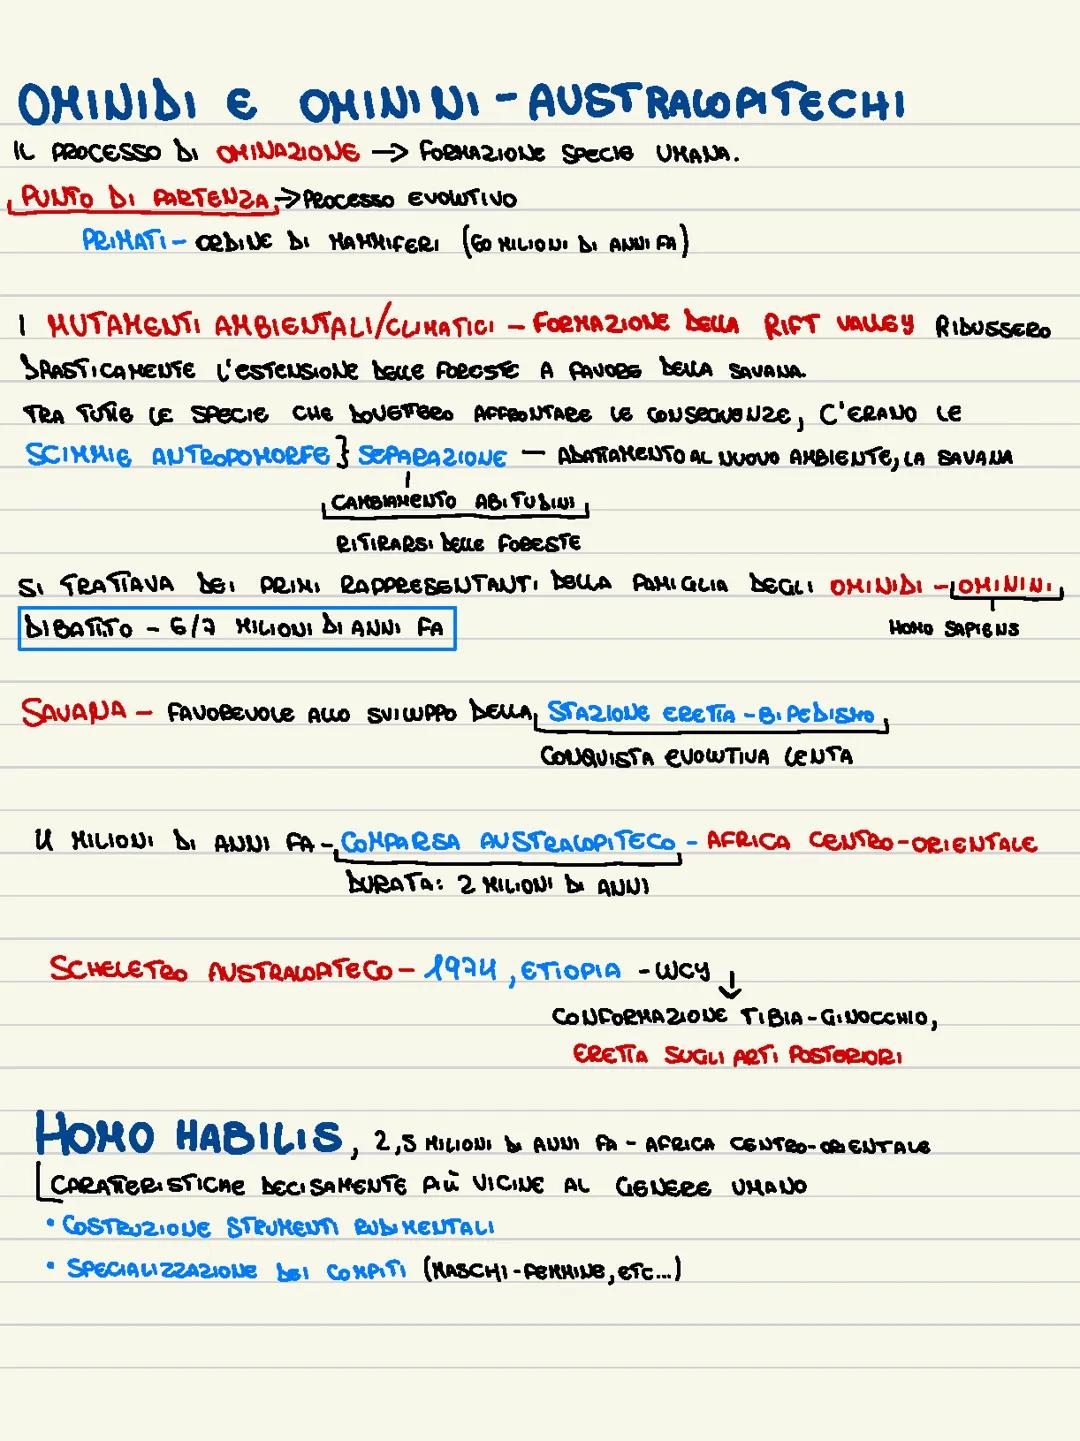 OMINIDI E OMININI - AUSTRALOPITECHI
IL PROCESSO DI OMINAZIONE → FORMAZIONE SPECIE UMANA.
PUNTO DI PARTENZA → PROCESSO EVOLUTIVO
PRIMATI - ORDINE DI MAMMIFERI (60 MILIONI DI ANNI FA)
I MUTAMENTI AMBIENTALI/CLIMATICI - FORMAZIONE DELLA RIFT VALLEY RIDUSSERO
DRASTICAMENTE L'ESTENSIONE DELLE FORESTE A FAVORE DELLA SAVANA.
TRA TUTTE LE SPECIE CHE DOVETTERO AFFRONTARE LE CONSEGUENZE, C'ERANO LE
SCIMMIE ANTROPOMORFE } SEPARAZIONE - ADATTAMENTO AL NUOVO AMBIENTE, LA SAVANA
CAMBIAMENTO ABITUDINI
RITIRARSI DELLE FORESTE
SI TRATTAVA DEI PRIMI RAPPRESENTANTI DELLA FAMIGLIA DEGLI OMINIDI - OMININI
DIBATTITO - 6/7 MILIONI DI ANNI FA
HOMO SAPIENS
SAVANA - FAVOREVOLE ALLO SVILUPPO DELLA STAZIONE ERETTA - BIPEDISMO
CONQUISTA EVOLUTIVA LENTA
4 MILIONI DI ANNI FA - COMPARSA AUSTRALOPITECO - AFRICA CENTRO-ORIENTALE
DURATA: 2 MILIONI DI ANNI
SCHELETRO AUSTRALOPITECO - 1974, ETIOPIA - LUCY ↓
CONFORMAZIONE TIBIA-GINOCCHIO,
ERETTA SUGLI ARTI POSTERIORI
HOMO HABILIS, 2,5 MILIONI DI ANNI FA - AFRICA CENTRO-ORIENTALE
CARATTERISTICHE DECISAMENTE PIÙ VICINE AL GENERE UMANO
• COSTRUZIONE STRUMENTI RUDIMENTALI
• SPECIALIZZAZIONE DEI COMPITI (MASCHI-FEMMINE, ETC...)